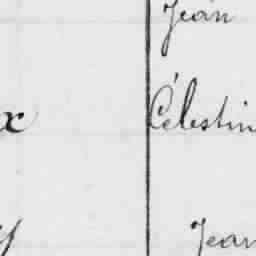 Jean
x Célestin
y Jean